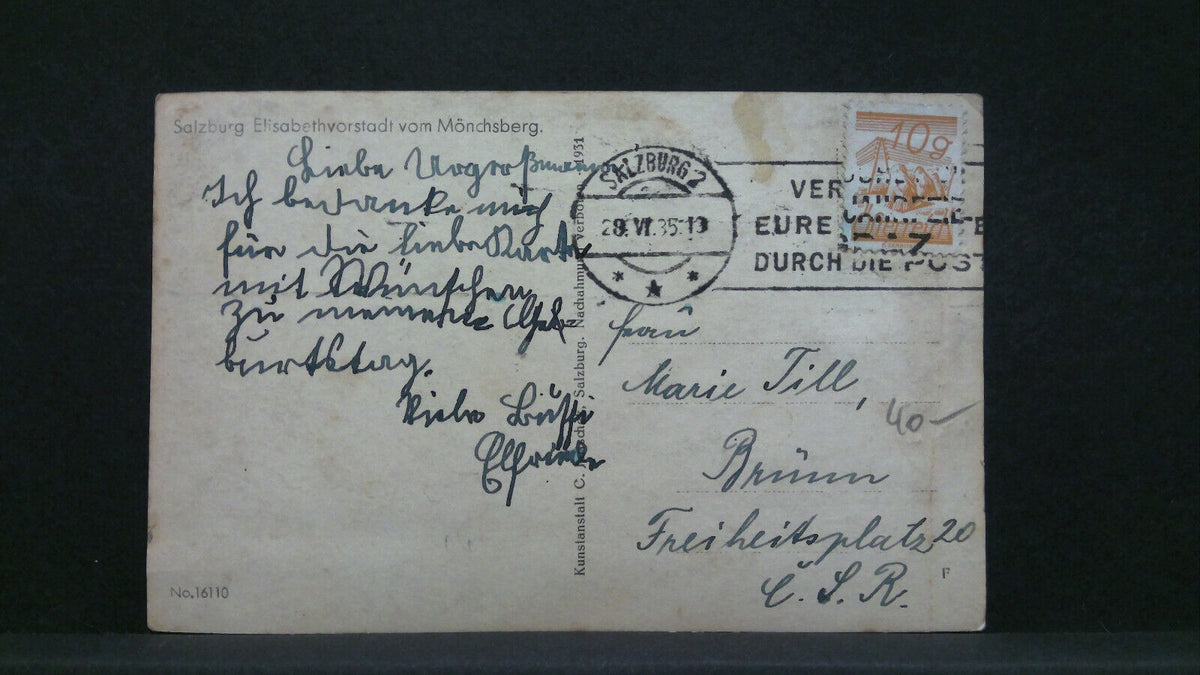 Salzburg Elisabethvorstadt vom Mönchsberg.
Liebe Urgroßmama
Ich bedanke mich
für die liebe Karte
mit Wünschen
zu meinem Ge-
burtstag.
Viele Bussi
Elfriede
No.16110
Kunstanstalt C. Salzburg. Nachahmung verboten 1931
SALZBURG 2
28. VI. 35. 13
VER
EURE
DURCH DIE POST
10g
Frau
Marie Till,
Brünn
Freiheitsplatz 20
Č. S. R.
40-
F